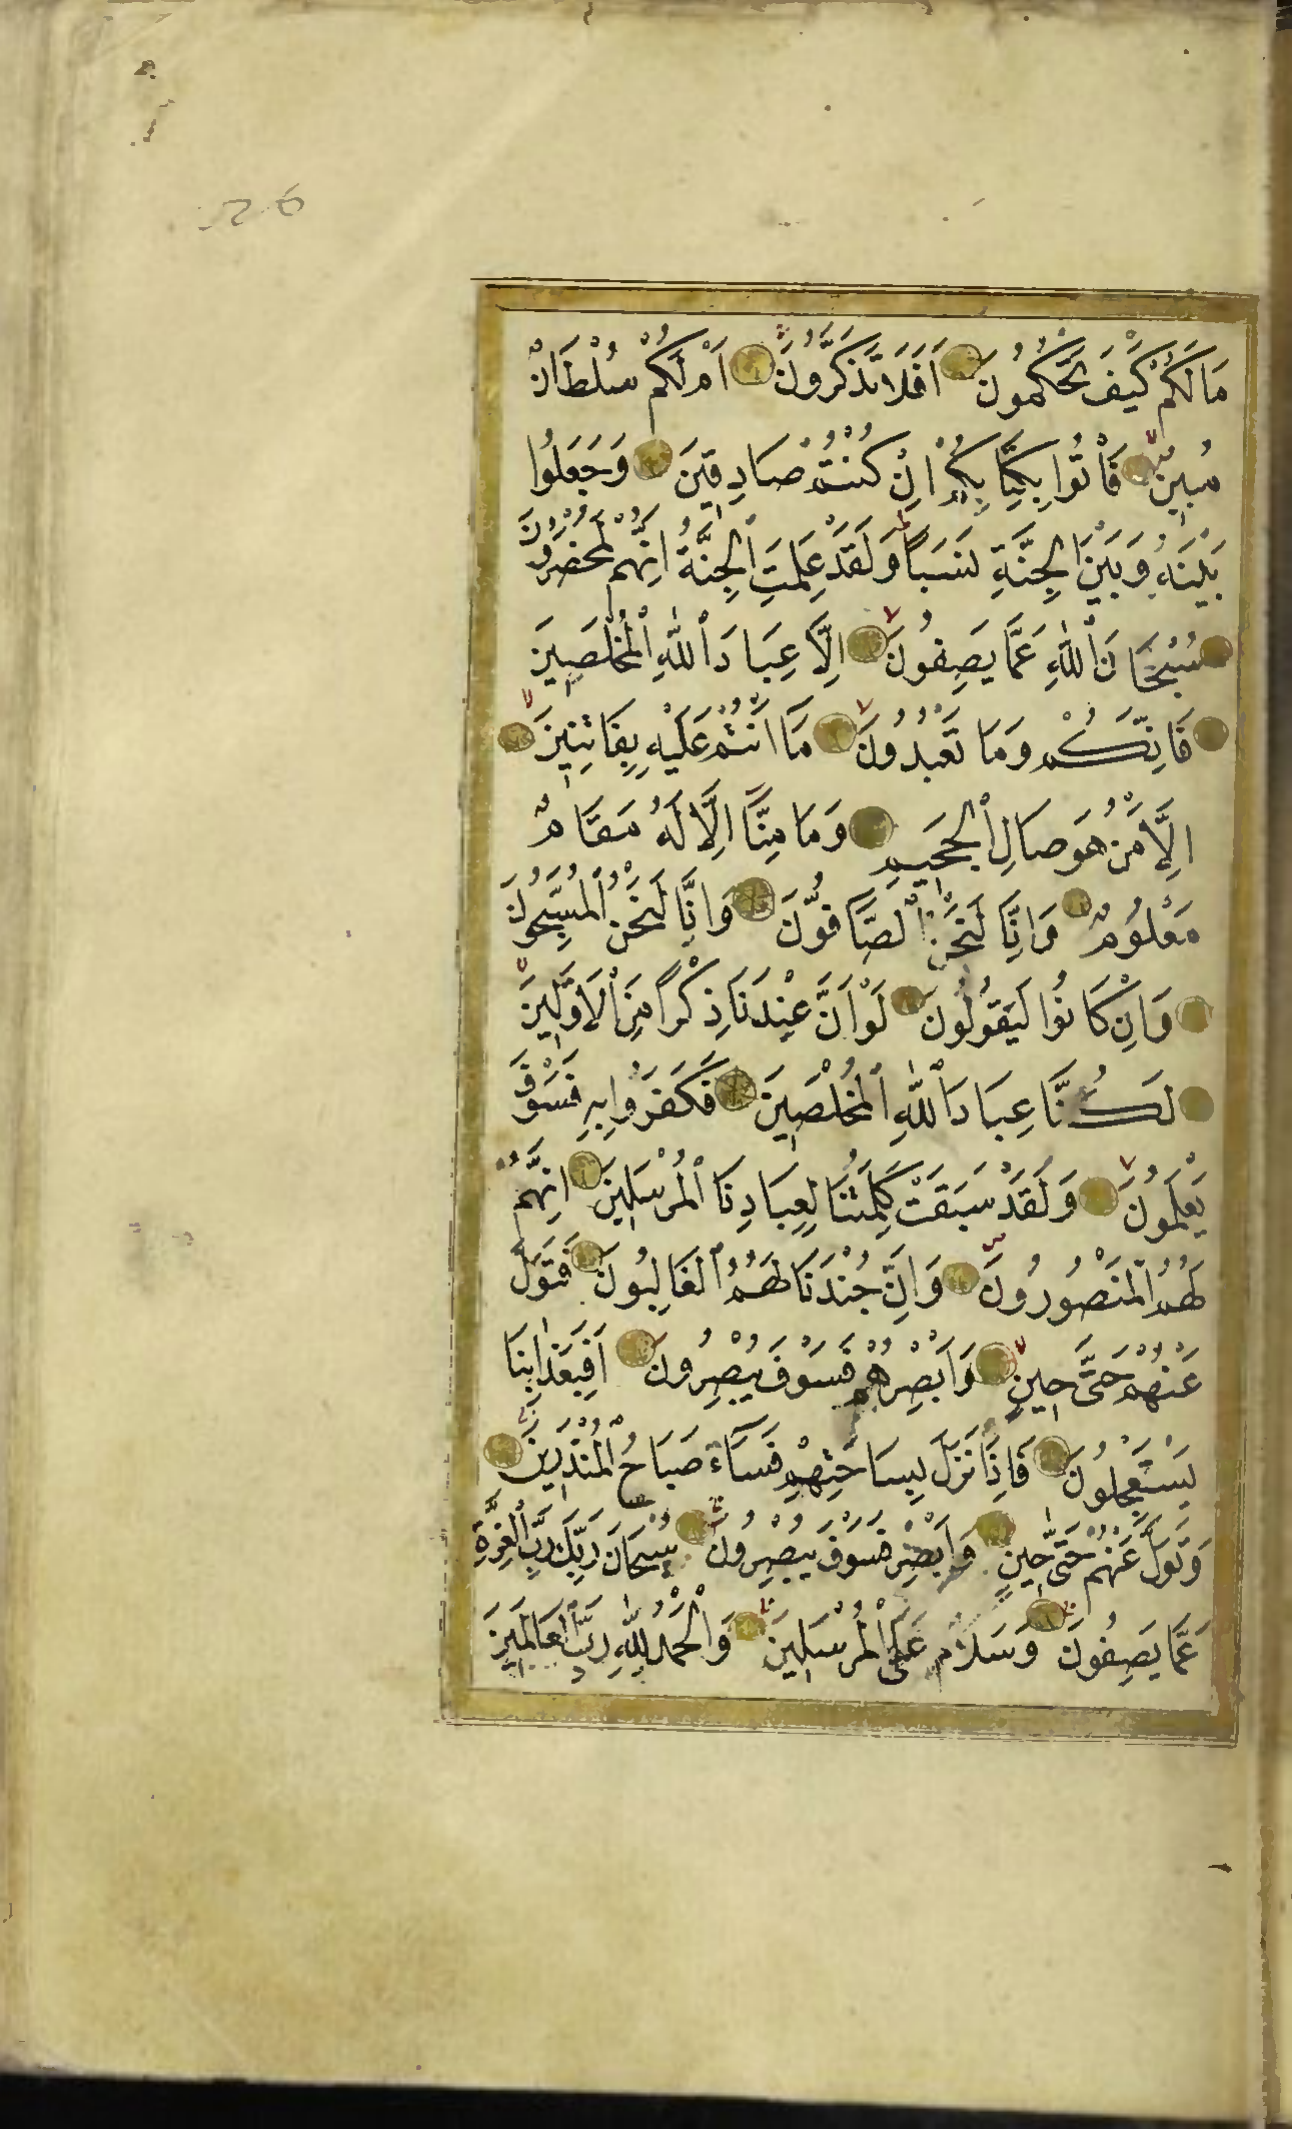 مَا لَكُمْ كَيْفَ تَحْكُمُونَ اَفَلَا تَذَكَّرُونَ اَمْ لَكُمْ سُلْطَانٌ
مُبِينٌ فَأْتُوا بِكِتَابِكُمْ اِنْ كُنْتُمْ صَادِقِينَ وَجَعَلُوا
بَيْنَهُ وَبَيْنَ الْجِنَّةِ نَسَبًا وَلَقَدْ عَلِمَتِ الْجِنَّةُ اِنَّهُمْ لَمُحْضَرُونَ
سُبْحَانَ اللّٰهِ عَمَّا يَصِفُونَ اِلَّا عِبَادَ اللّٰهِ الْمُخْلَصِينَ
فَاِنَّكُمْ وَمَا تَعْبُدُونَ مَا اَنْتُمْ عَلَيْهِ بِفَاتِنِينَ
اِلَّا مَنْ هُوَ صَالِ الْجَحِيمِ وَمَا مِنَّا اِلَّا لَهُ مَقَامٌ
مَعْلُومٌ وَاِنَّا لَنَحْنُ الصَّافُّونَ وَاِنَّا لَنَحْنُ الْمُسَبِّحُونَ
وَاِنْ كَانُوا لَيَقُولُونَ لَوْ اَنَّ عِنْدَنَا ذِكْرًا مِنَ الْاَوَّلِينَ
لَكُنَّا عِبَادَ اللّٰهِ الْمُخْلَصِينَ فَكَفَرُوا بِهِ فَسَوْفَ
يَعْلَمُونَ وَلَقَدْ سَبَقَتْ كَلِمَتُنَا لِعِبَادِنَا الْمُرْسَلِينَ اِنَّهُمْ
لَهُمُ الْمَنْصُورُونَ وَاِنَّ جُنْدَنَا لَهُمُ الْغَالِبُونَ فَتَوَلَّ
عَنْهُمْ حَتَّى حِينٍ وَاَبْصِرْهُمْ فَسَوْفَ يُبْصِرُونَ اَفَبِعَذَابِنَا
يَسْتَعْجِلُونَ فَاِذَا نَزَلَ بِسَاحَتِهِمْ فَسَآءَ صَبَاحُ الْمُنْذَرِينَ
وَتَوَلَّ عَنْهُمْ حَتَّى حِينٍ وَاَبْصِرْ فَسَوْفَ يُبْصِرُونَ سُبْحَانَ رَبِّكَ رَبِّ الْعِزَّةِ
عَمَّا يَصِفُونَ وَسَلَامٌ عَلَى الْمُرْسَلِينَ وَالْحَمْدُ لِلّٰهِ رَبِّ الْعَالَمِينَ